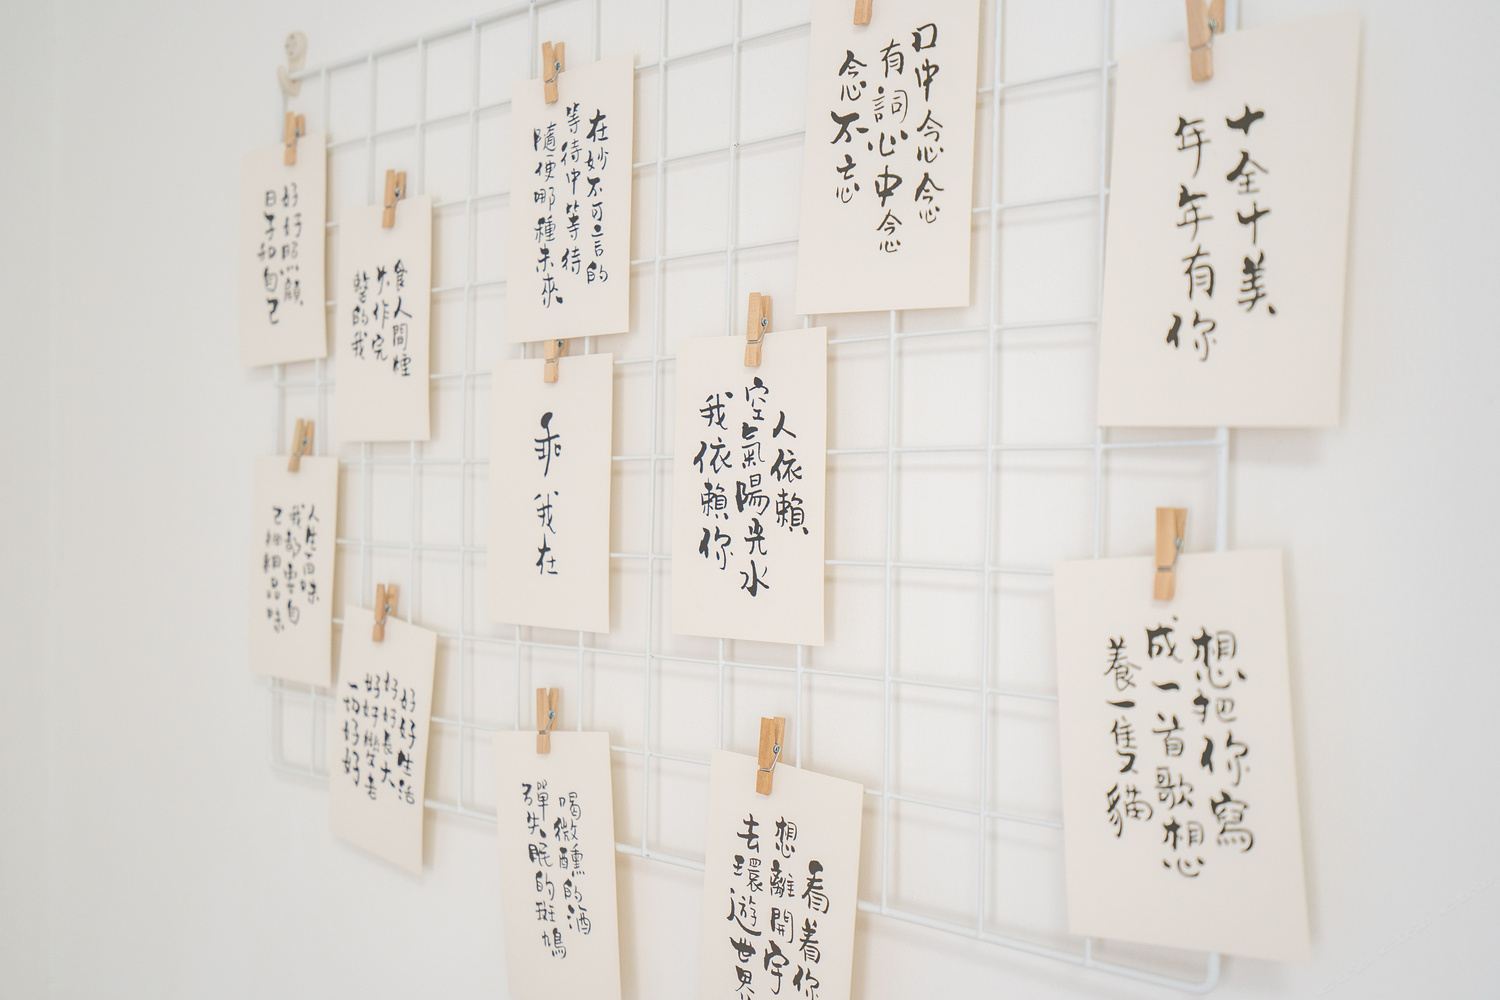 好好照顧
日子和自己
食人間煙
火作完
整的我
在妙不可言的
等待中等待
隨便哪種未來
口中念念
有詞心中念
念不忘
十全十美
年年有你
乖
我在
人依賴
空氣陽光水
我依賴你
人生百味
我都要自
己細細品味
好好生活
好好長大
好好變老
一切好好
喝微醺的酒
彈失眠的斑鳩
看着你
想離開宇
去環遊世界
想把你寫
成一首歌想
養一隻貓